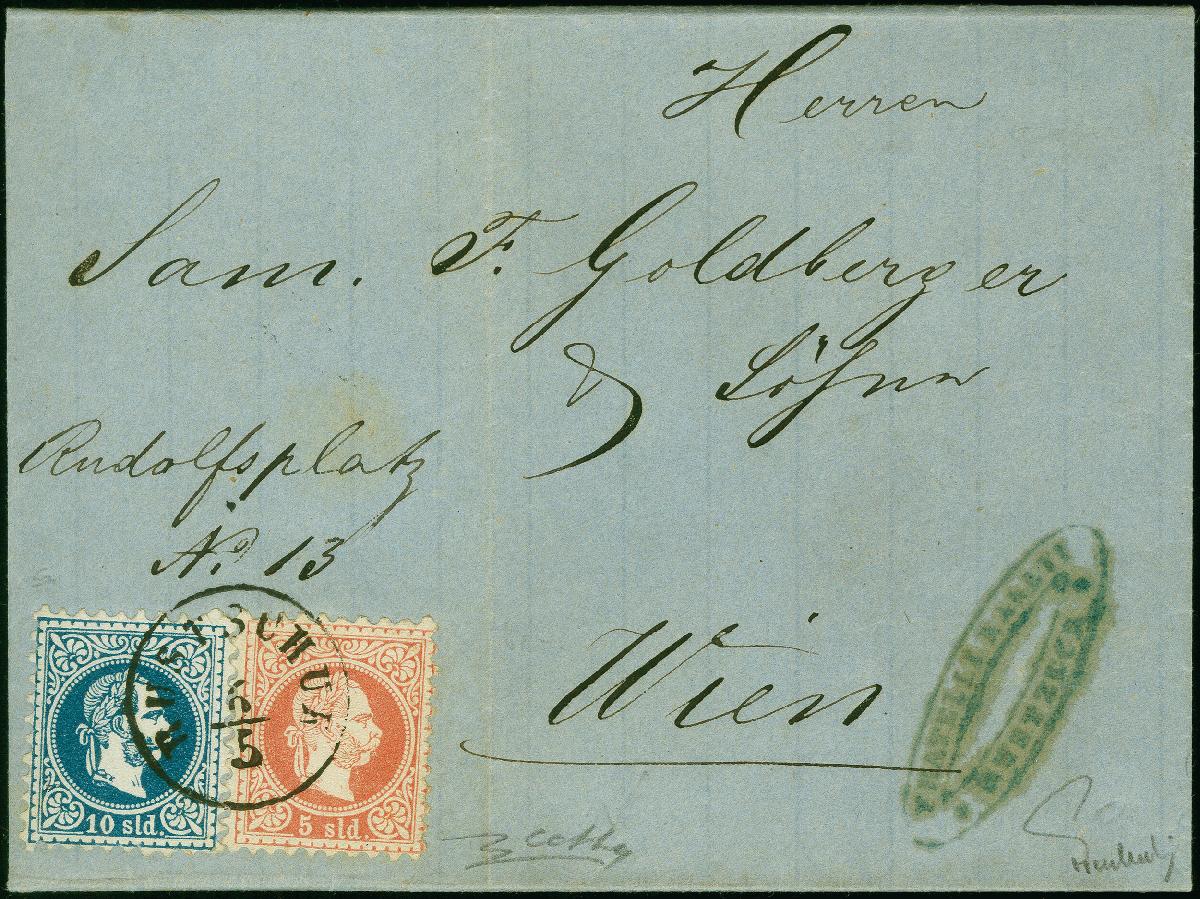 Herren
Sam. F. Goldberger
& Söhne
Rudolfsplatz
No. 13
Wien
RUSTSCHUK
/5
10 sld.
5 sld.